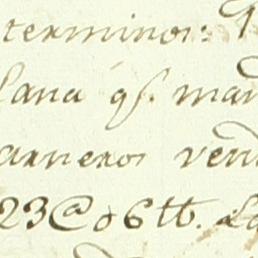 terminos:
Lana qe. man
arneros ven
23@ o6 tt. La